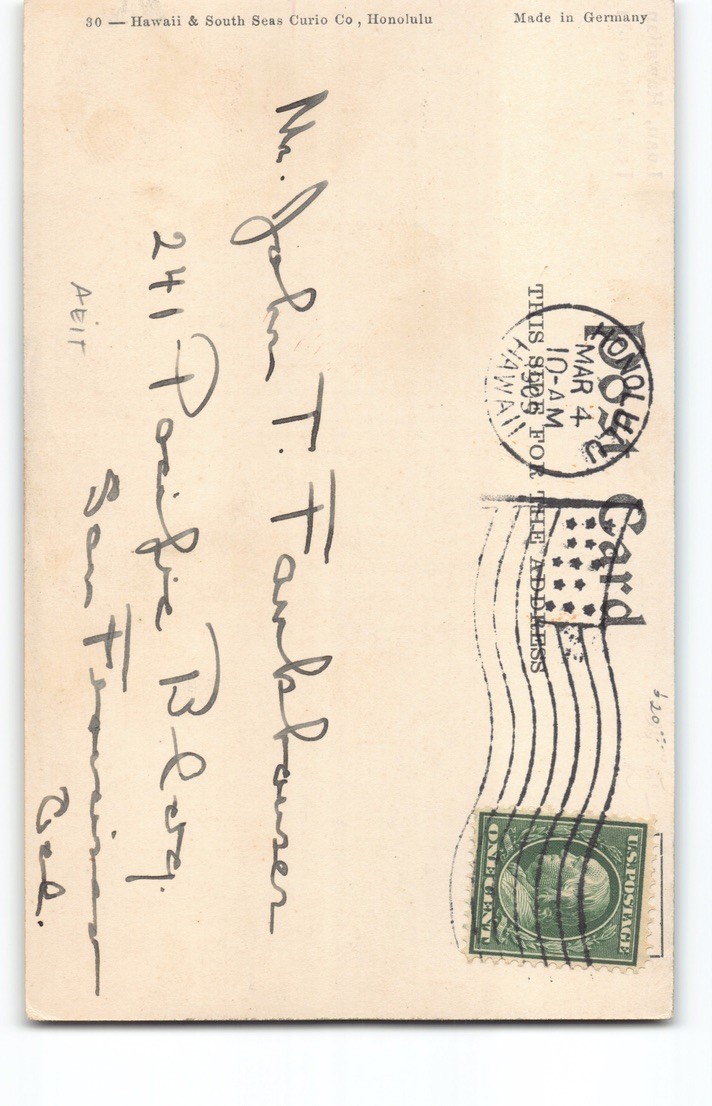 30 — Hawaii & South Seas Curio Co, Honolulu
Made in Germany
Post Card
THIS SIDE FOR THE ADDRESS
HONOLULU
MAR 4
10-AM
1909
HAWAII
U.S. POSTAGE
ONE CENT
Mr. John T. Fankhauser
241 Pacific Bldg.
San Francisco
Cal.